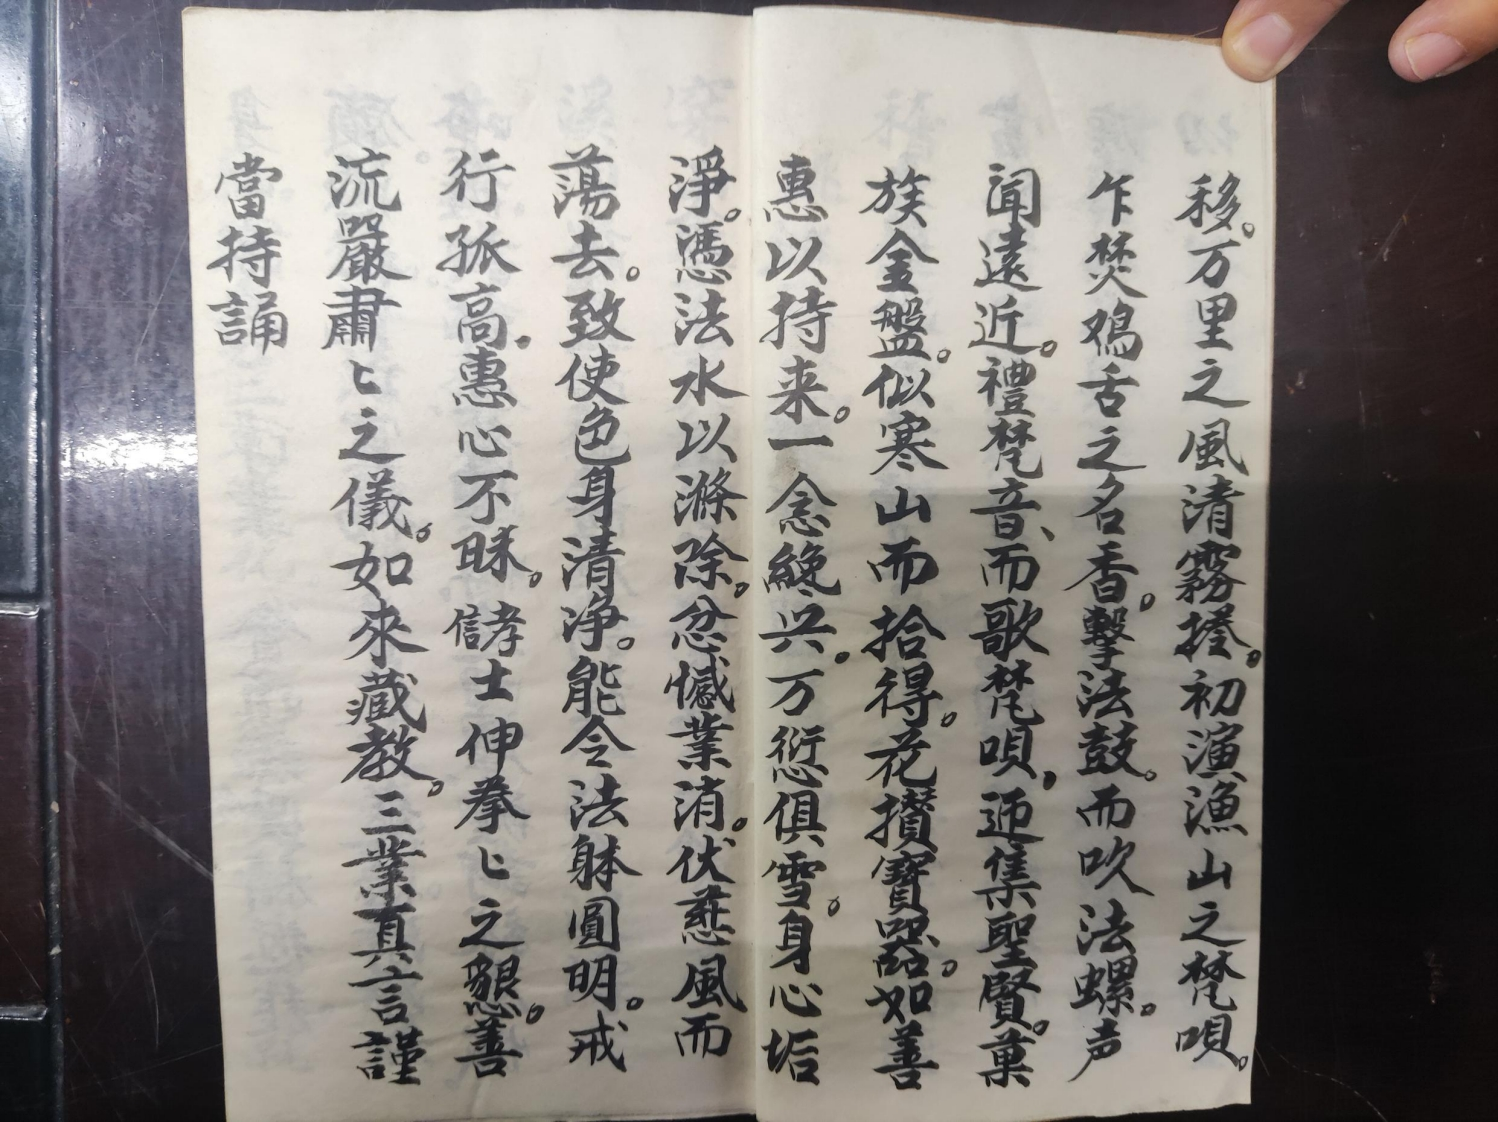 移。万里之風清霧捲。初演漁山之梵唄。
乍焚鸡舌之名香。擊法鼓。而吹法螺。声
闻遠近。禮梵音、而歌梵唄，迎集聖賢。菓
族金盤。似寒山而拾得。花攅寶器。如善
惠以持来。一念纔兴。万愆俱雪。身心垢
淨。憑法水以滌除。忿憾業消。伏慈風而
蕩去。致使色身清净。能令法躰圓明。戒
行孤高。惠心不昧。儲士伸拳〻之懇。善
流嚴肅〻之儀。如來藏教。三業真言謹
當持誦